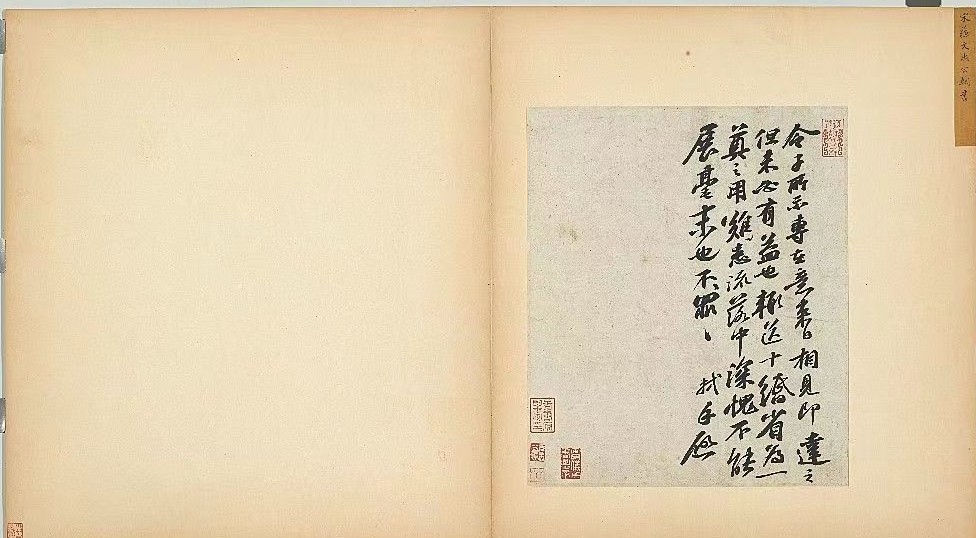 宋蘇文忠公軾書
令子所示專在意來日相見即達之
但未必有益也輒送十縑省為一
奠之用難患流落中深愧不能
展毫末也不罪〻 軾手啟